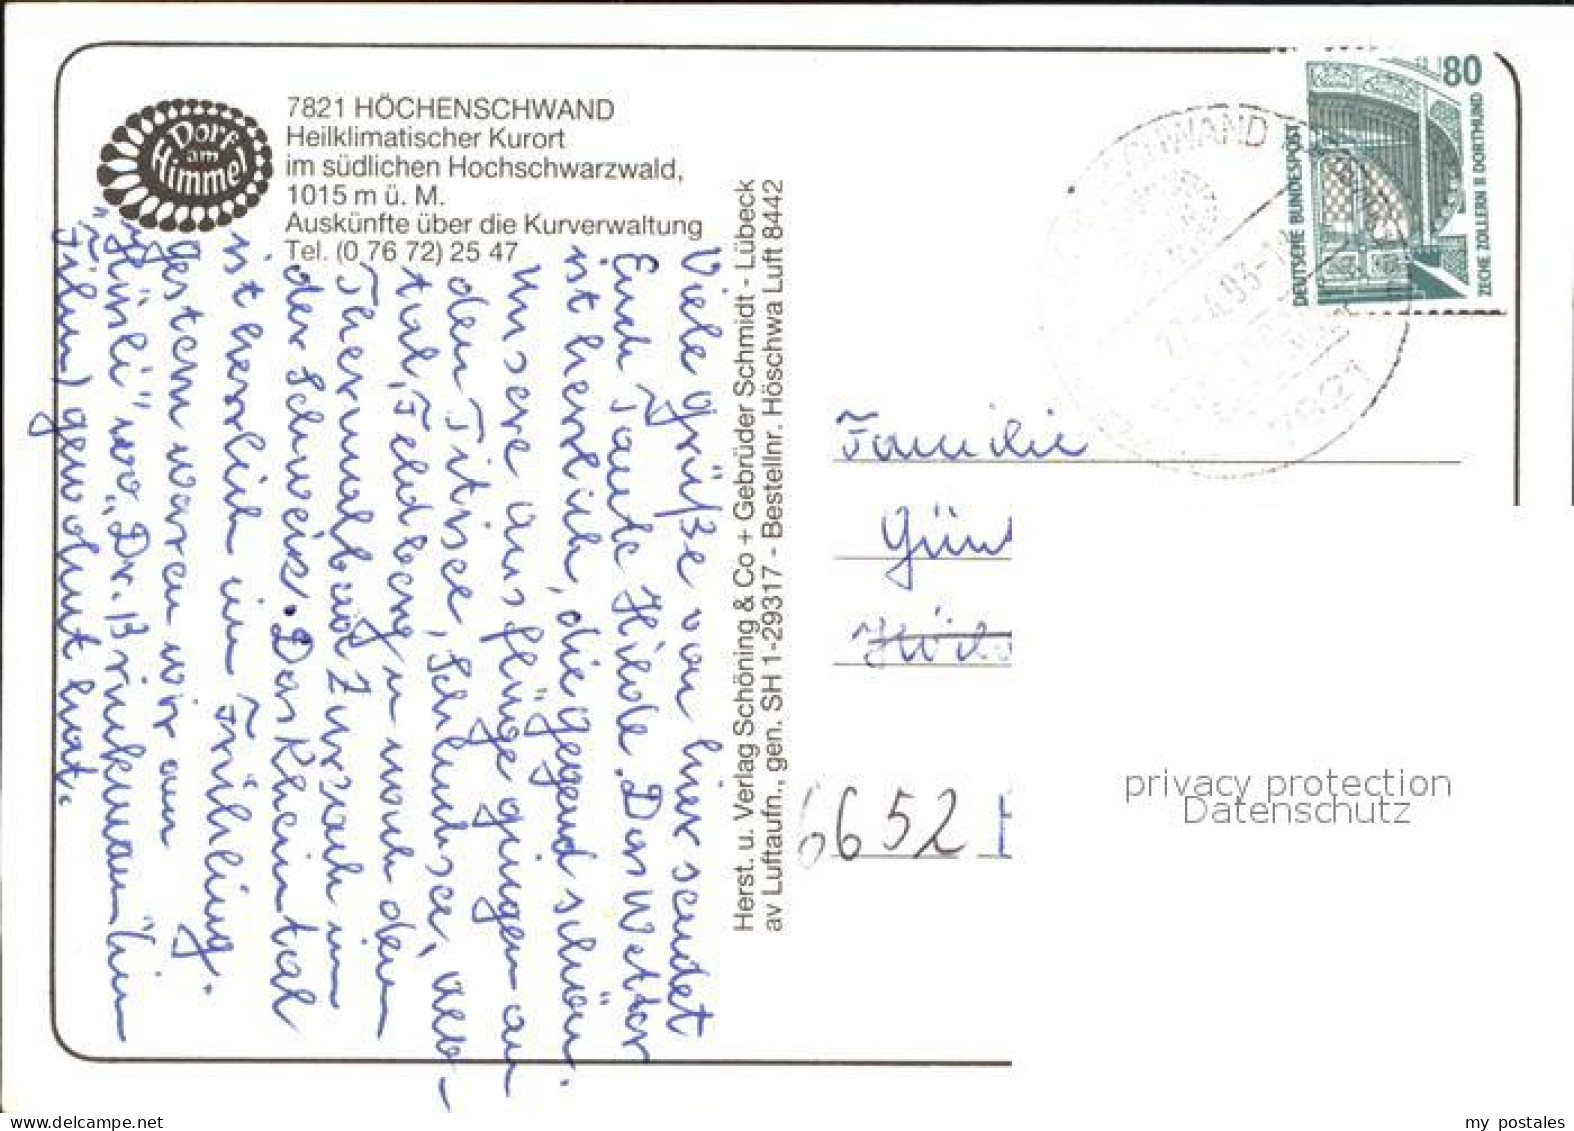 Dorf
am
Himmel
7821 HÖCHENSCHWAND
Heilklimatischer Kurort
im südlichen Hochschwarzwald,
1015 m ü. M.
Auskünfte über die Kurverwaltung
Tel. (0 76 72) 25 47
Viele Grüße von hier sendet
Euch Tante Hilde. Das Wetter
ist herrlich, die Gegend schön.
Unsere Ausflüge gingen an
den Titisee, Schluchsee,
tal, Feldberg u nach dem
Thermalbad Zurzach in
der Schweiz. Das Kleintal
ist herrlich im Frühling.
Gestern waren wir am
"Hüsli" wo "Dr. Brinkmann" (im
Film) gewohnt hat.
Herst. u. Verlag Schöning & Co + Gebrüder Schmidt - Lübeck
av Luftaufn., gen. SH 1-29317 - Bestellnr. Höschwa Luft 8442
80
DEUTSCHE BUNDESPOST
ZECHE ZOLLERN II DORTMUND
CHWAND
27.-4.93-18
7821
Familie
Günt
6652
privacy protection
Datenschutz
www.delcampe.net
my postales